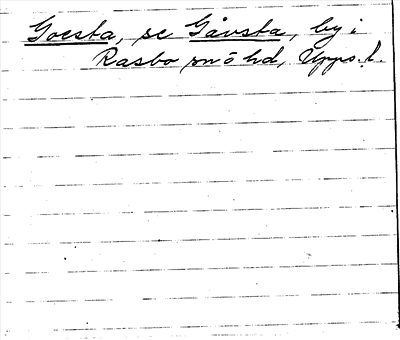 Goesta, se Gåvsta, by i
Rasbo sn ō hd, Upps. l.